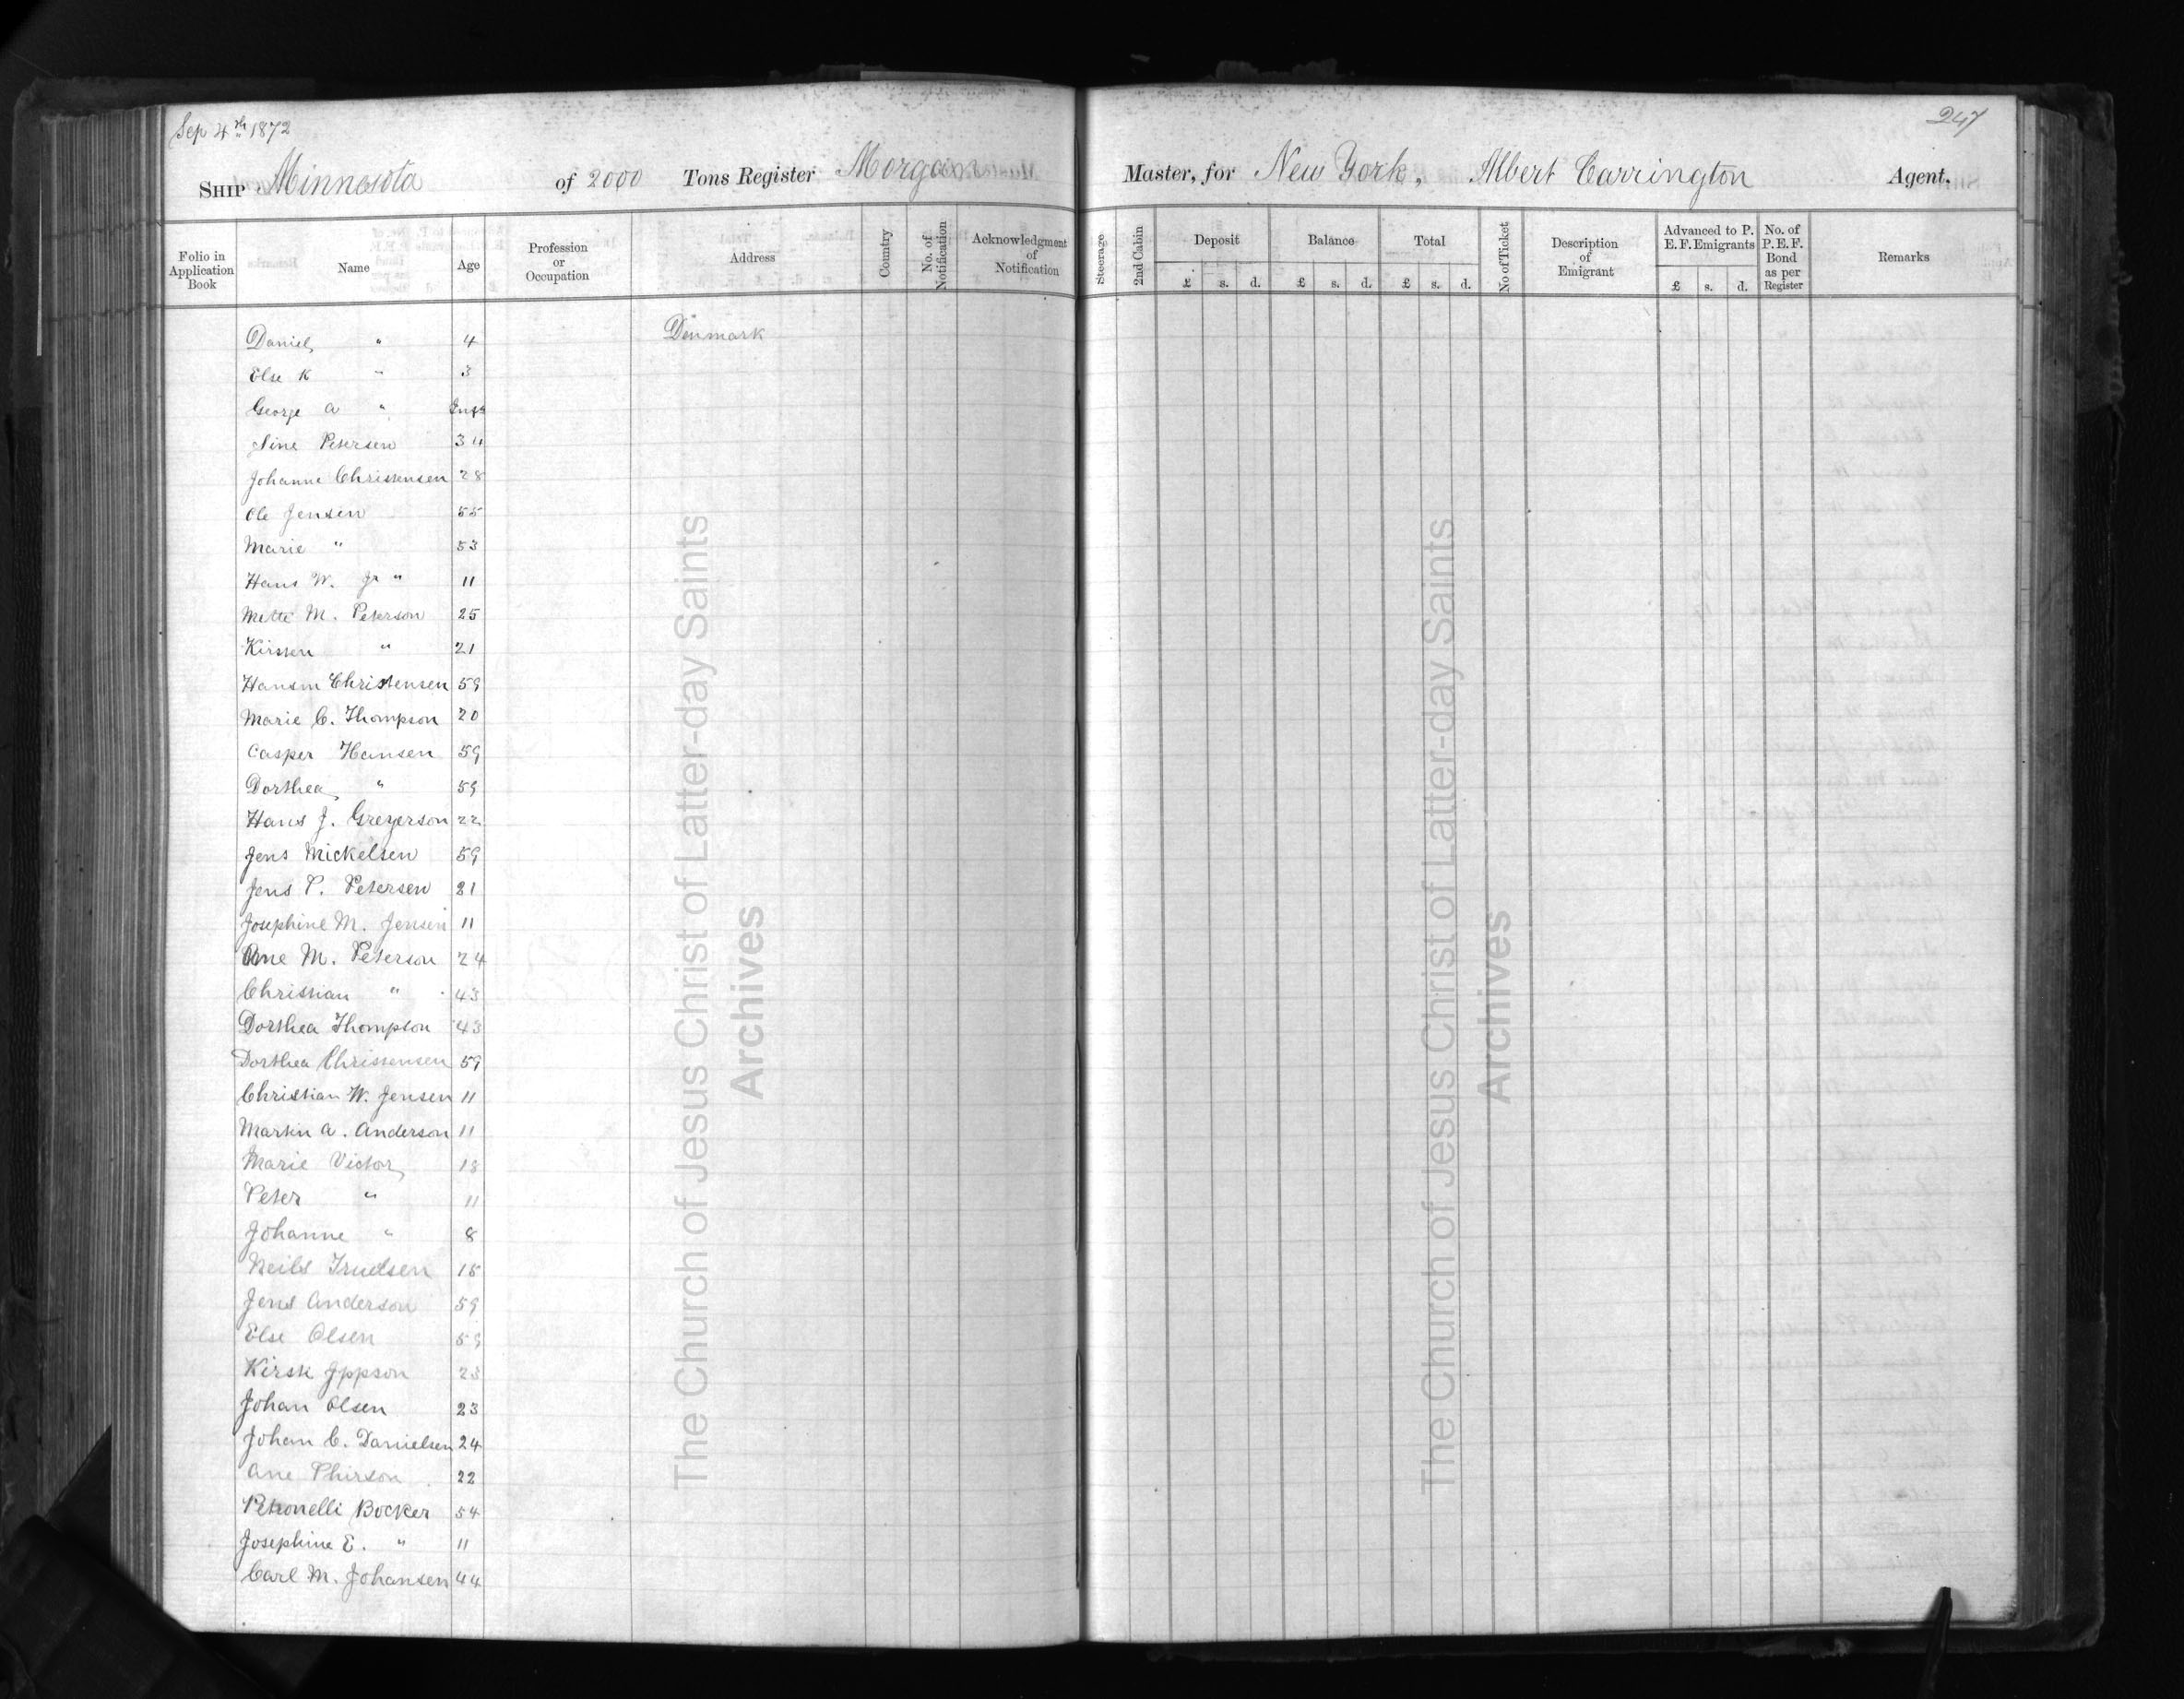 Sep 4th 1872
247
Ship Minnesota of 2000 Tons Register Morgan Master, for New York, Albert Carrington Agent.
Folio in Application Book Name Age Profession or Occupation Address Country No. of Notification Acknowledgment of Notification Steerage 2nd Cabin Deposit £ s. d. Balance £ s. d. Total £ s. d. No of Ticket Description of Emigrant Advanced to P. E. F. Emigrants £ s. d. No. of P. E. F. Bond as per Register Remarks
Daniel " 4 Denmark
Else K " 3
George A " Inft
Sine Petersen 34
Johanne Christensen 28
Ole Jensen 55
Marie " 53
Hans W. Jr " 11
Mette M. Peterson 25
Kirsten " 21
Hansin Christensen 59
Marie C. Thompson 20
Casper Hansen 59
Dorthea " 59
Hans J. Greyerson 22
Jens Mickelsen 59
Jens P. Petersen 21
Josephine M. Jensen 11
Ane M. Peterson 24
Christian " 43
Dorthea Thompson 43
Dorthea Christensen 59
Christian W. Jensen 11
Martin A. Anderson 11
Marie Victor 18
Peter " 11
Johanne " 8
Neils 15
Jens Anderson 59
Else Olsen 59
Kirste Jppson 23
Johan Olsen 23
Johan C. Danielsen 24
Ane Phirson 22
Petronelli Bocker 54
Josephine E. " 11
Carl M. Johansen 44
The Church of Jesus Christ of Latter-day Saints
Archives
The Church of Jesus Christ of Latter-day Saints
Archives